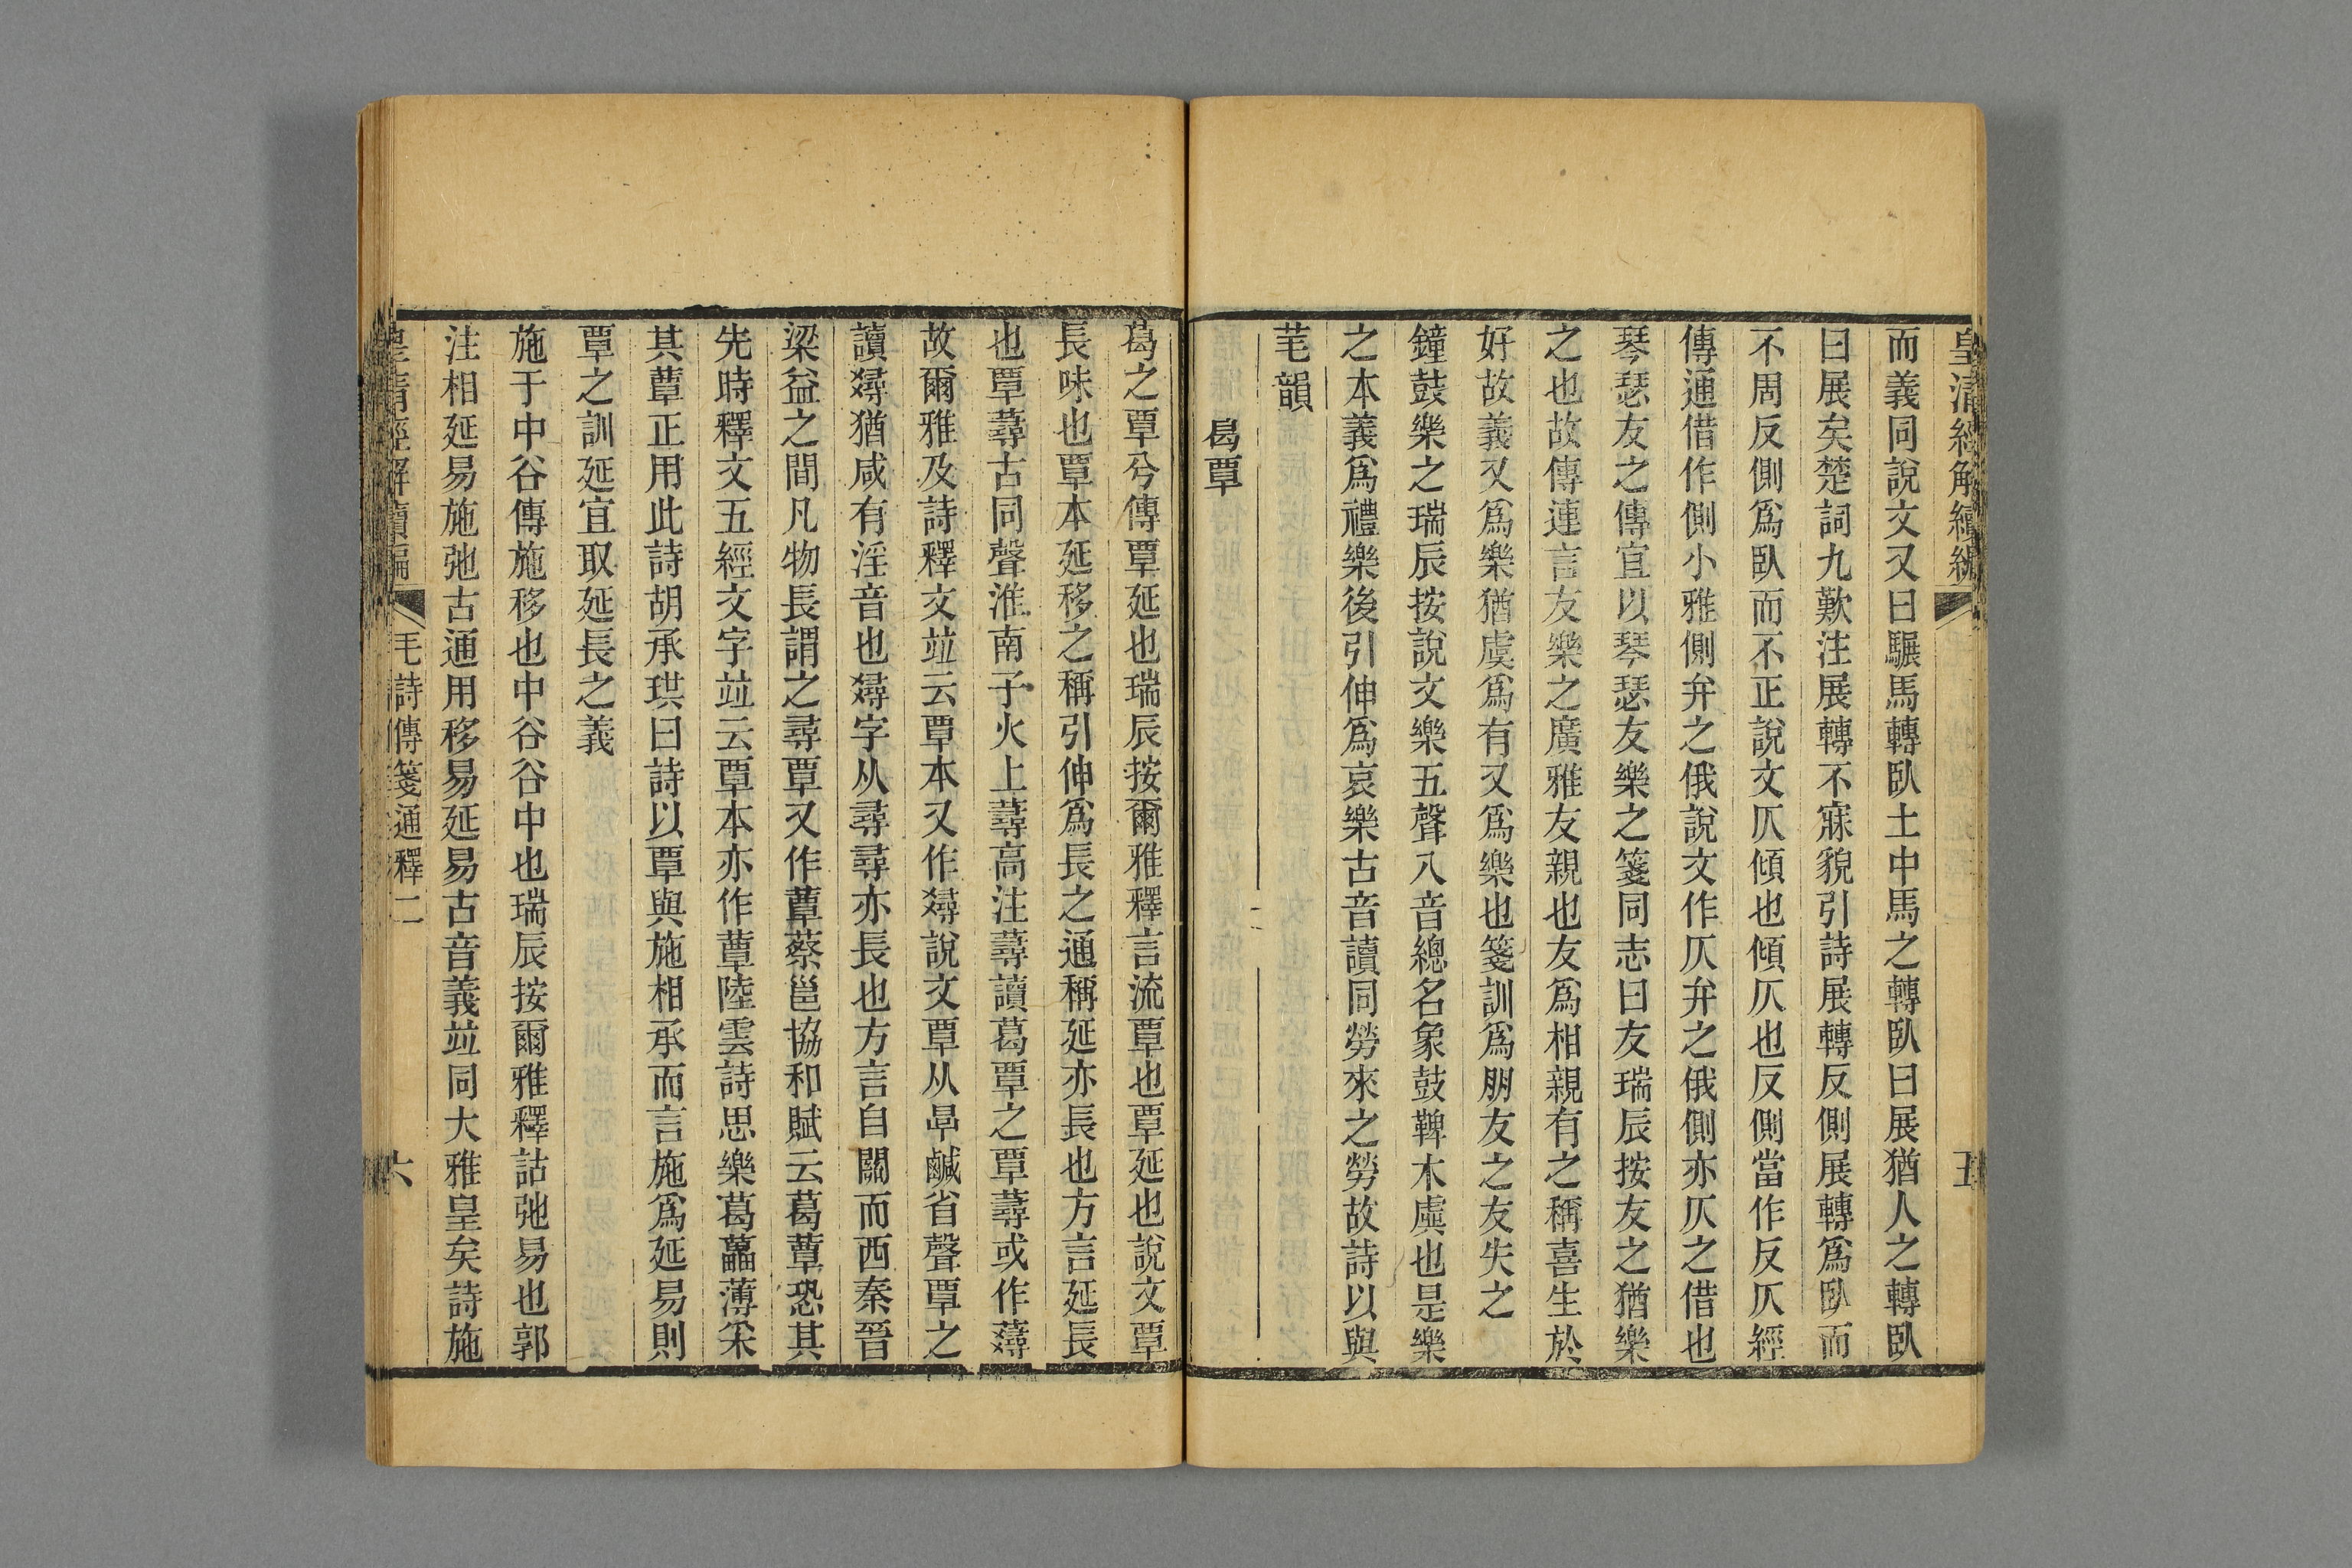 皇清經解續編
五
而義同說文又曰驏馬轉臥土中馬之轉臥曰展猶人之轉臥
曰展矣楚詞九歎注展轉不寐貌引詩展轉反側展轉爲臥而
不周反側爲臥而不正說文仄傾也傾仄也反側當作反仄經
傳通借作側小雅側弁之俄說文作仄弁之俄側亦仄之借也
琴瑟友之傳宜以琴瑟友樂之箋同志曰友瑞辰按友之猶樂
之也故傳連言友樂之廣雅友親也友爲相親有之稱喜生於
好故義又爲樂猶虞爲有又爲樂也箋訓爲朋友之友失之
鐘鼓樂之瑞辰按說文樂五聲八音總名象鼓鞞木虡也是樂
之本義爲禮樂後引伸爲哀樂古音讀同勞來之勞故詩以與
芼韻
葛覃
葛之覃兮傳覃延也瑞辰按爾雅釋言流覃也覃延也說文覃
長味也覃本延移之稱引伸爲長之通稱延亦長也方言延長
也覃蕁古同聲淮南子火上蕁高注蕁讀葛覃之覃蕁或作䕭
故爾雅及詩釋文竝云覃本又作㷟說文覃从㫗鹹省聲覃之
讀㷟猶咸有淫音也㷟字从尋尋亦長也方言自關而西秦晉
梁益之間凡物長謂之尋覃又作蕈蔡邕協和賦云葛蕈恐其
先時釋文五經文字竝云覃本亦作蕈陸雲詩思樂葛藟薄采
其蕈正用此詩胡承珙曰詩以覃與施相承而言施爲延易則
覃之訓延宜取延長之義
施于中谷傳施移也中谷谷中也瑞辰按爾雅釋詁弛易也郭
注相延易施弛古通用移易延易古音義竝同大雅皇矣詩施
皇清經解續編
毛詩傳箋通釋二
六